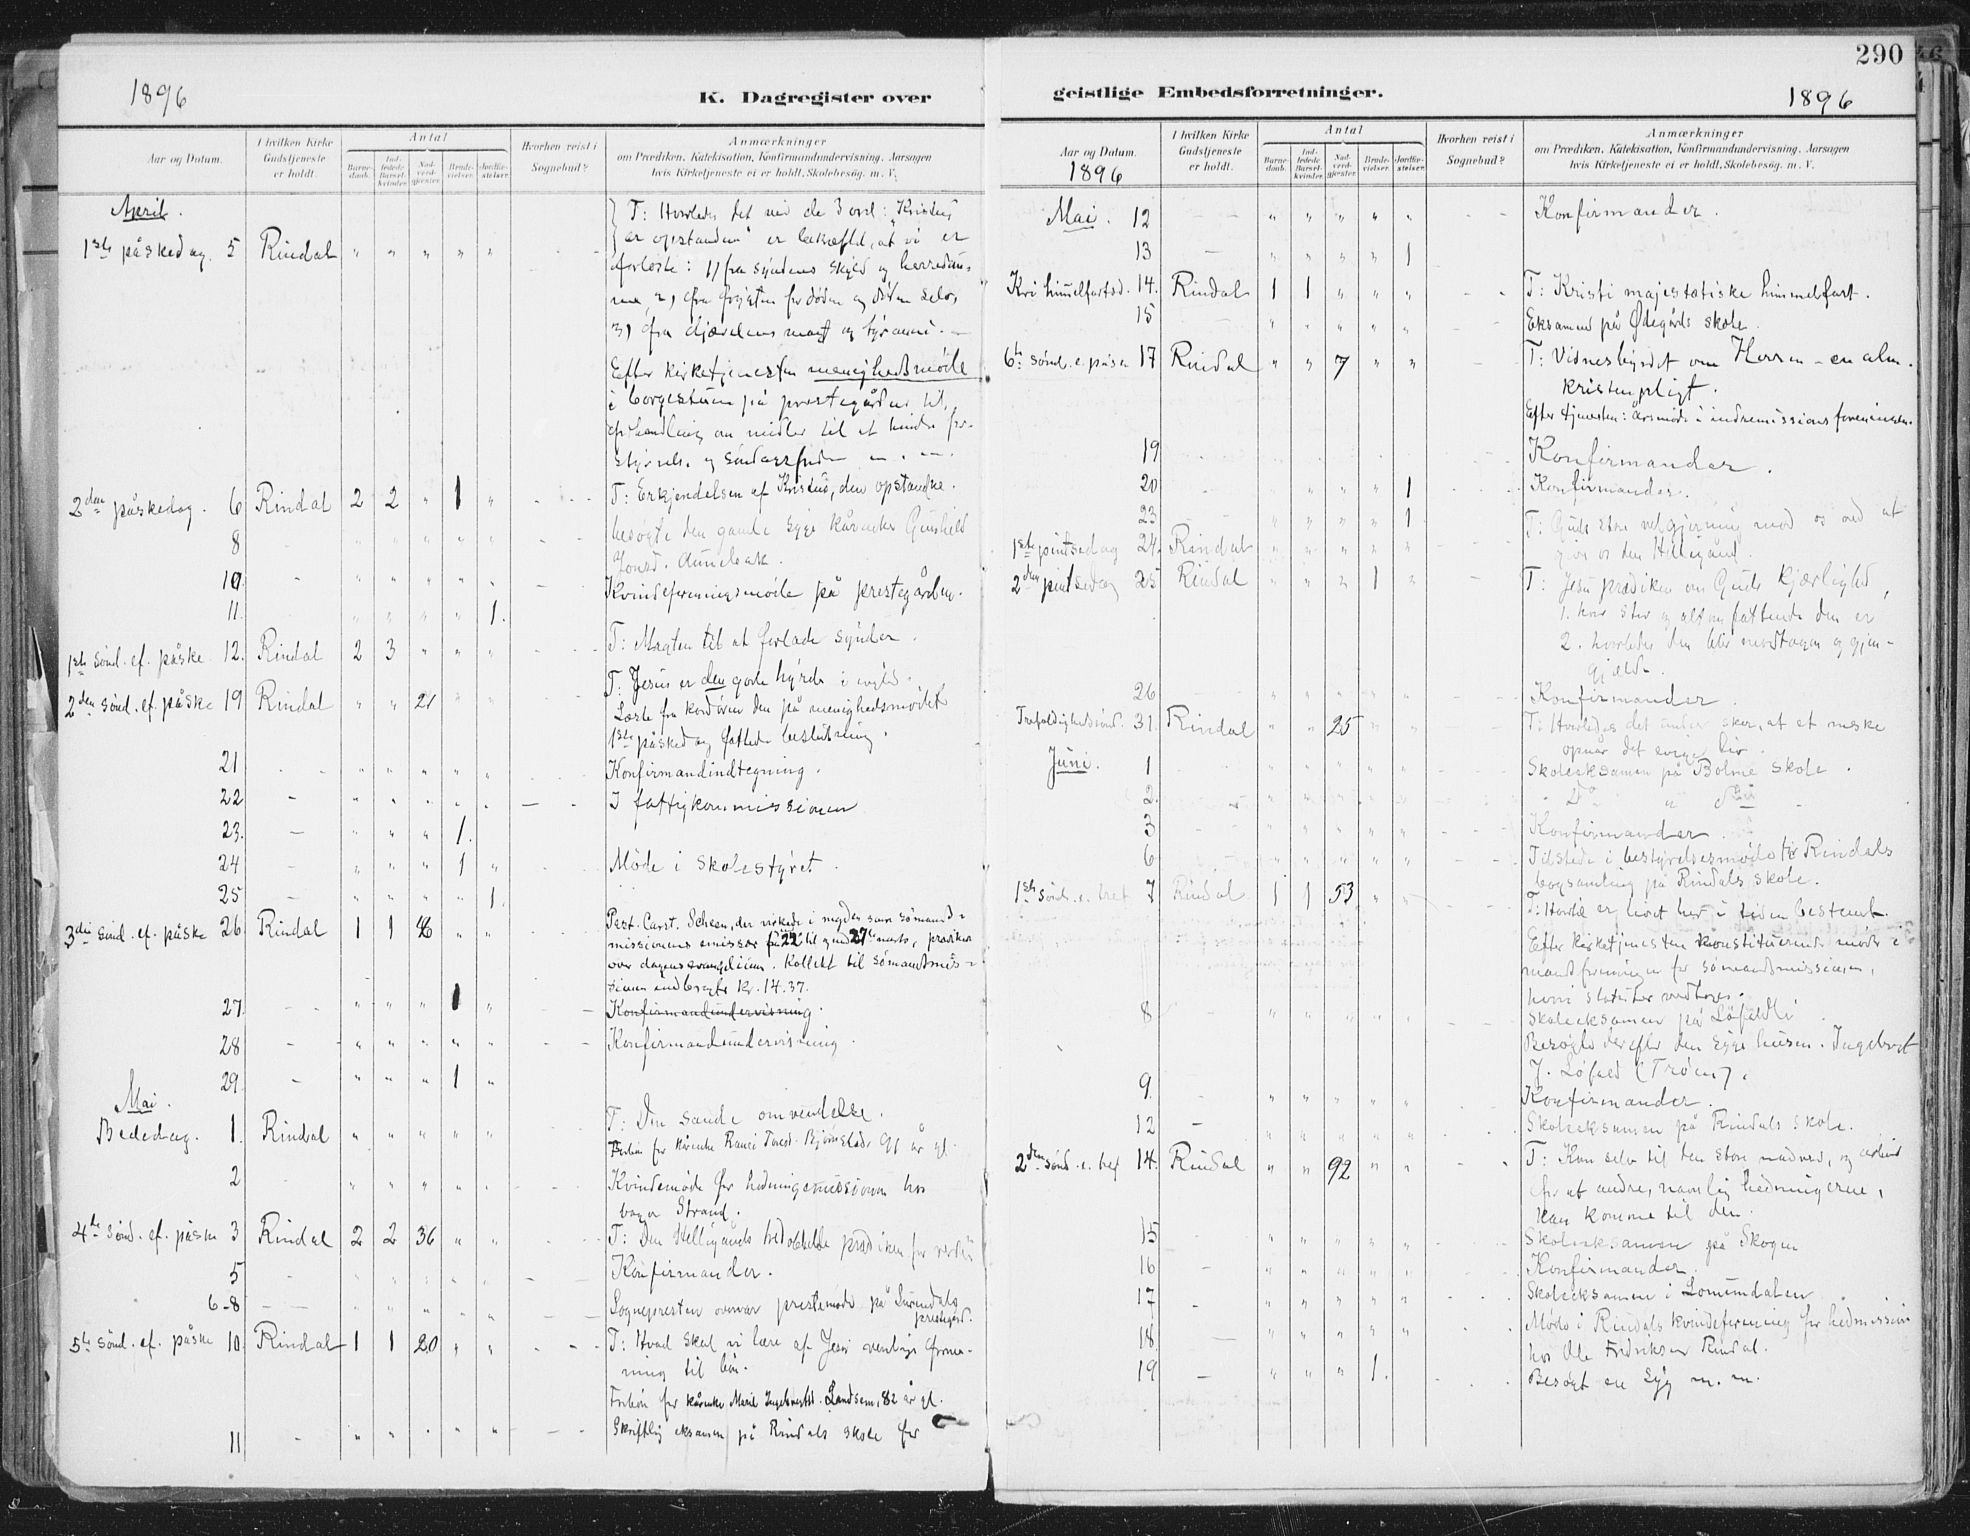 290
1896
K. Dagregister over
geistlige Embedsforretninger.
1896
Aar og Datum.
I hvilken Kirke Gudstjeneste er holdt.
Antal
Barne-daab.
Ind-ledede Barsel-kvinder.
Nad-verd-gjester.
Brude-vielser.
Jordfæ-stelser.
Hvorhen reist i Sognebud?
Anmærkninger
om Prædiken, Katekisation, Konfirmandundervisning, Aarsagen
hvis Kirketjeneste ei er holdt, Skolebesøg, m. V.
April.
1ste påskedag. 5 Rindal " " " " " T: Hvorledes det med de 3 ord: "Kristus
er opstanden" er bekræftet, at vi er
forløste: 1) fra syndens skyld og herredøm-
me, 2) fra frygten for døden og døden selv,
3) fra djævelens magt og tyranni. —
Efter kirketjenesten menighedsmøde
i borgestuen på prestegården til
forhandling om midler til at hindre for-
styrrelse og
2den påskedag. 6 Rindal 2 2 " 1 " T: Erkjendelsen af Kristus, den opstandne.
8 besøgte den gamle syge kårenke Gunhild
10 " " " " " Kvindeforeningsmøde på prestegården.
11. " " " " 1.
1ste sønd. ef. påske 12. Rindal 2 3 " " " T: Magten til at forlade synder.
2den sønd. ef. påske 19 Rindal " " 21 " " T: Jesus er den gode hyrde
Læste fra kordøren den på menighedsmødet
1ste påskedag fattede beslutning.
21 " " " " " Konfirmandindtegning.
22 " " " " " I fattigkommissionen
23. " " " 1.
24 " " " 1 " Møde i skolestyret.
25 " " " " 1.
3die sønd. ef. påske 26 Rindal 1 1 18 " " Pers. Carst. Scheen, der virkede i menigheden som sømands-
missionens emissær fra 22 til 27 marts, prædiken
over dagens evangelium. Kollekt til sømandsmis-
sionen indbragte Kr. 14.37.
27. " " " 1 " Konfirmandundervisning.
28 " " " " " Konfirmandundervisning.
29. " " " 1 "
Mai.
Bededag. 1. Rindal " " " " " T: Den sande omvendelse.
2 " " " " " Kvindemøde for hedningemissionen hos
Strand.
4de sønd. ef. påske 3 Rindal 2 2 36 " " T: Den Helligånds prædiken for verden
5 Konfirmander.
6-8 Sognepresten overvar prestemøde på Surendals
prestegård.
5te sønd. ef. påske 10. Rindal 1 1 20 " " T: Hvad skal vi lære af Jesu venlige
ning til bøn.
Forbøn for kårenke Marit Landsem, 82 år gl.
11 " " " " " Skriftlig eksamen på Rindals skole for
Aar og Datum.
1896
I hvilken Kirke Gudstjeneste er holdt.
Antal
Barne-daab.
Ind-ledede Barsel-kvinder.
Nad-verd-gjester.
Brude-vielser.
Jordfæ-stelser.
Hvorhen reist i Sognebud?
Anmærkninger
om Prædiken, Katekisation, Konfirmandundervisning, Aarsagen
hvis Kirketjeneste ei er holdt, Skolebesøg, m. V.
Mai. 12 " " " " " Konfirmander.
13 " " " " 1
Kri himmelfartsd. 14. Rindal 1 1 " " " T: Kristi majestætiske himmelfart.
15 " " " " " Eksamen på Ødegårds skole.
6te sønd. e. påske 17 Rindal " " 7 " " T: Vidnesbyrdet om Herren - en alm.
kristenpligt.
Efter tjenesten: årsmøde i indremissionsforeningen.
19 Konfirmander.
20 " " " " 1 Konfirmander.
23 " " " " 1
1ste pintsedag 24. Rindal " " " " " T: Guds store velgjerning mod os ved at
give os den Helligånd.
2den pintsedag 25 Rindal " " " 1 " T: Jesu prædiken om Guds kjærlighed,
1. hvor stor og altomfattende den er
2. hvorledes den blir modtagen og gjen-
gjældt.
26 Konfirmander
Trefoldighedssønd. 31. Rindal " " 25 " " T: Hvorledes det under sker, at et meske
opnår det evige liv.
Juni. 1 " " " " " Skoleeksamen på Bolme skole.
2. " " " " " Do "
3 Konfirmander.
6 Tilstede i bestyrelsesmøde for Rindals
bogsamling på Rindals skole.
1ste sønd. e. tref 7 Rindal 1 1 53 " " T: Hvortil er livet her i tiden bestemt.
Efter kirketjenesten konstituerende møde i
mandsforeningen for sømandsmissionen,
hvori statuter vedtoges.
8 Skoleeksamen på Løfaldli
Besøgte derefter den syge husm. Ingebrigt
J. Løfald (Trøen).
9. Konfirmander.
12 " " " " " Skoleeksamen på Rindals skole.
2den sønd. e. tref 14. Rindal " " 92 " " T: Kom selv til den store nadverd, og arbeid
for at andre, navnlig hedningerne,
kan komme til den.
15 " " " " " Skoleeksamen på Skogen
16 " " " " " Konfirmander.
17 " " " " " Skoleeksamen i Lomundalen
18 Møde i Rindals kvindeforening for hedmission
hos Ole Fredriksen Rindal.
19 " " " 1. Besøgt en syg m. m.